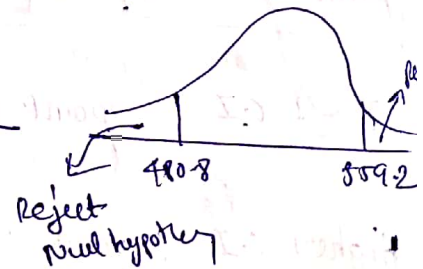 Re
480.8 559.2
Reject
Null hypothes